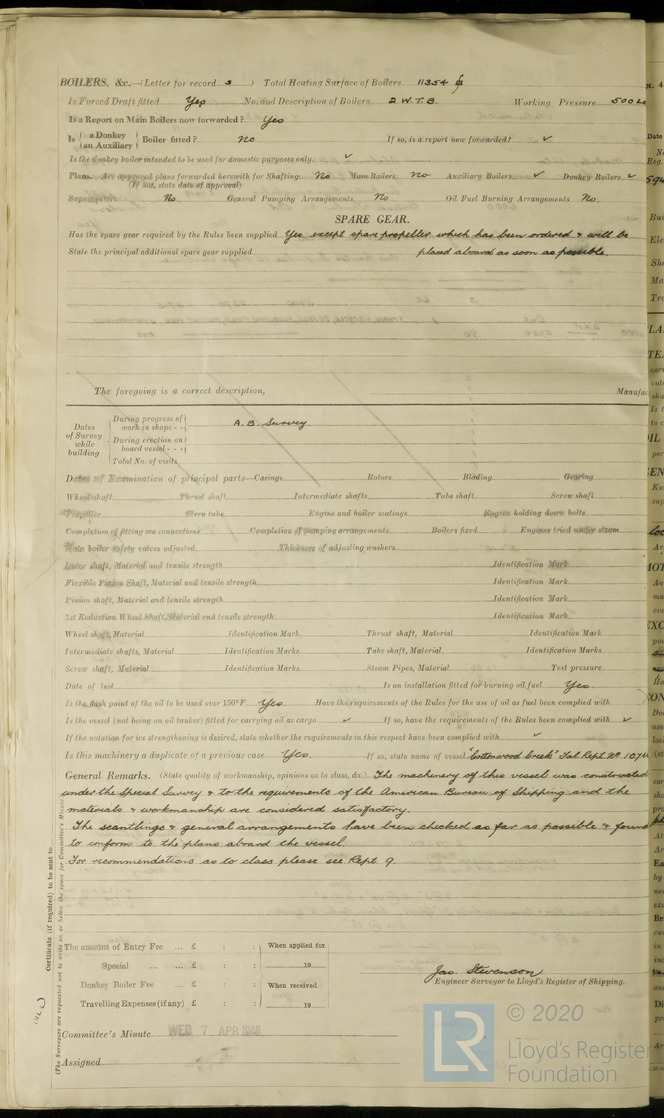 BOILERS, &c.—(Letter for record s ) Total Heating Surface of Boilers 11354
Is Forced Draft fitted Yes No. and Description of Boilers 2 W.T.B. Working Pressure 500
Is a Report on Main Boilers now forwarded? Yes
Is { a Donkey / an Auxiliary } Boiler fitted? No If so, is a report now forwarded? ✓
Is the donkey boiler intended to be used for domestic purposes only ✓
Plans. Are approved plans forwarded herewith for Shafting No Main Boilers No Auxiliary Boilers ✓ Donkey Boilers ✓
(If not, state date of approval)
Superheaters No General Pumping Arrangements No Oil Fuel Burning Arrangements No.
SPARE GEAR.
Has the spare gear required by the Rules been supplied Yes except spare propeller which has been ordered & will be
State the principal additional spare gear supplied placed aboard as soon as possible.
The foregoing is a correct description, Manufac
Dates of Survey while building
During progress of work in shops - -
A.B. Survey
During erection on board vessel - - -
Total No. of visits
Dates of Examination of principal parts—Casings Rotors Blading Gearing
Wheel shaft Thrust shaft Intermediate shafts Tube shaft Screw shaft
Propeller Stern tube Engine and boiler seatings Engine holding down bolts
Completion of fitting sea connections Completion of pumping arrangements Boilers fixed Engines tried under steam
Main boiler safety valves adjusted Thickness of adjusting washers
Rotor shaft, Material and tensile strength Identification Mark
Flexible Pinion Shaft, Material and tensile strength Identification Mark
Pinion shaft, Material and tensile strength Identification Mark
1st Reduction Wheel Shaft, Material and tensile strength Identification Mark
Wheel shaft, Material Identification Mark Thrust shaft, Material Identification Mark
Intermediate shafts, Material Identification Marks Tube shaft, Material Identification Marks
Screw shaft, Material Identification Marks Steam Pipes, Material Test pressure
Date of test Is an installation fitted for burning oil fuel Yes.
Is the flash point of the oil to be used over 150°F. Yes. Have the requirements of the Rules for the use of oil as fuel been complied with
Is the vessel (not being an oil tanker) fitted for carrying oil as cargo ✓ If so, have the requirements of the Rules been complied with ✓
If the notation for ice strengthening is desired, state whether the requirements in this respect have been complied with ✓
Is this machinery a duplicate of a previous case Yes. If so, state name of vessel "Cottonwood Creek" Gal. Rept. No
General Remarks. (State quality of workmanship, opinions as to class, &c.) The machinery of this vessel was constructed
under the Special Survey & to the requirements of the American Bureau of Shipping and the
materials & workmanship are considered satisfactory.
The scantlings & general arrangements have been checked as far as possible & found
to conform to the plans aboard the vessel.
For recommendations as to class please see Rept 9.
Certificate (if required) to be sent to
(The Surveyors are requested not to write on or below the space for Committee's Minute.)
The amount of Entry Fee ... £ : : When applied for
Special ... ... £ : : 19
Donkey Boiler Fee ... £ : : When received
Travelling Expenses (if any) £ : : 19
Jas. Stevenson
Engineer Surveyor to Lloyd's Register of Shipping.
Committee's Minute WED 7 APR 1948
Assigned
© 2020
Lloyd's Register
Foundation